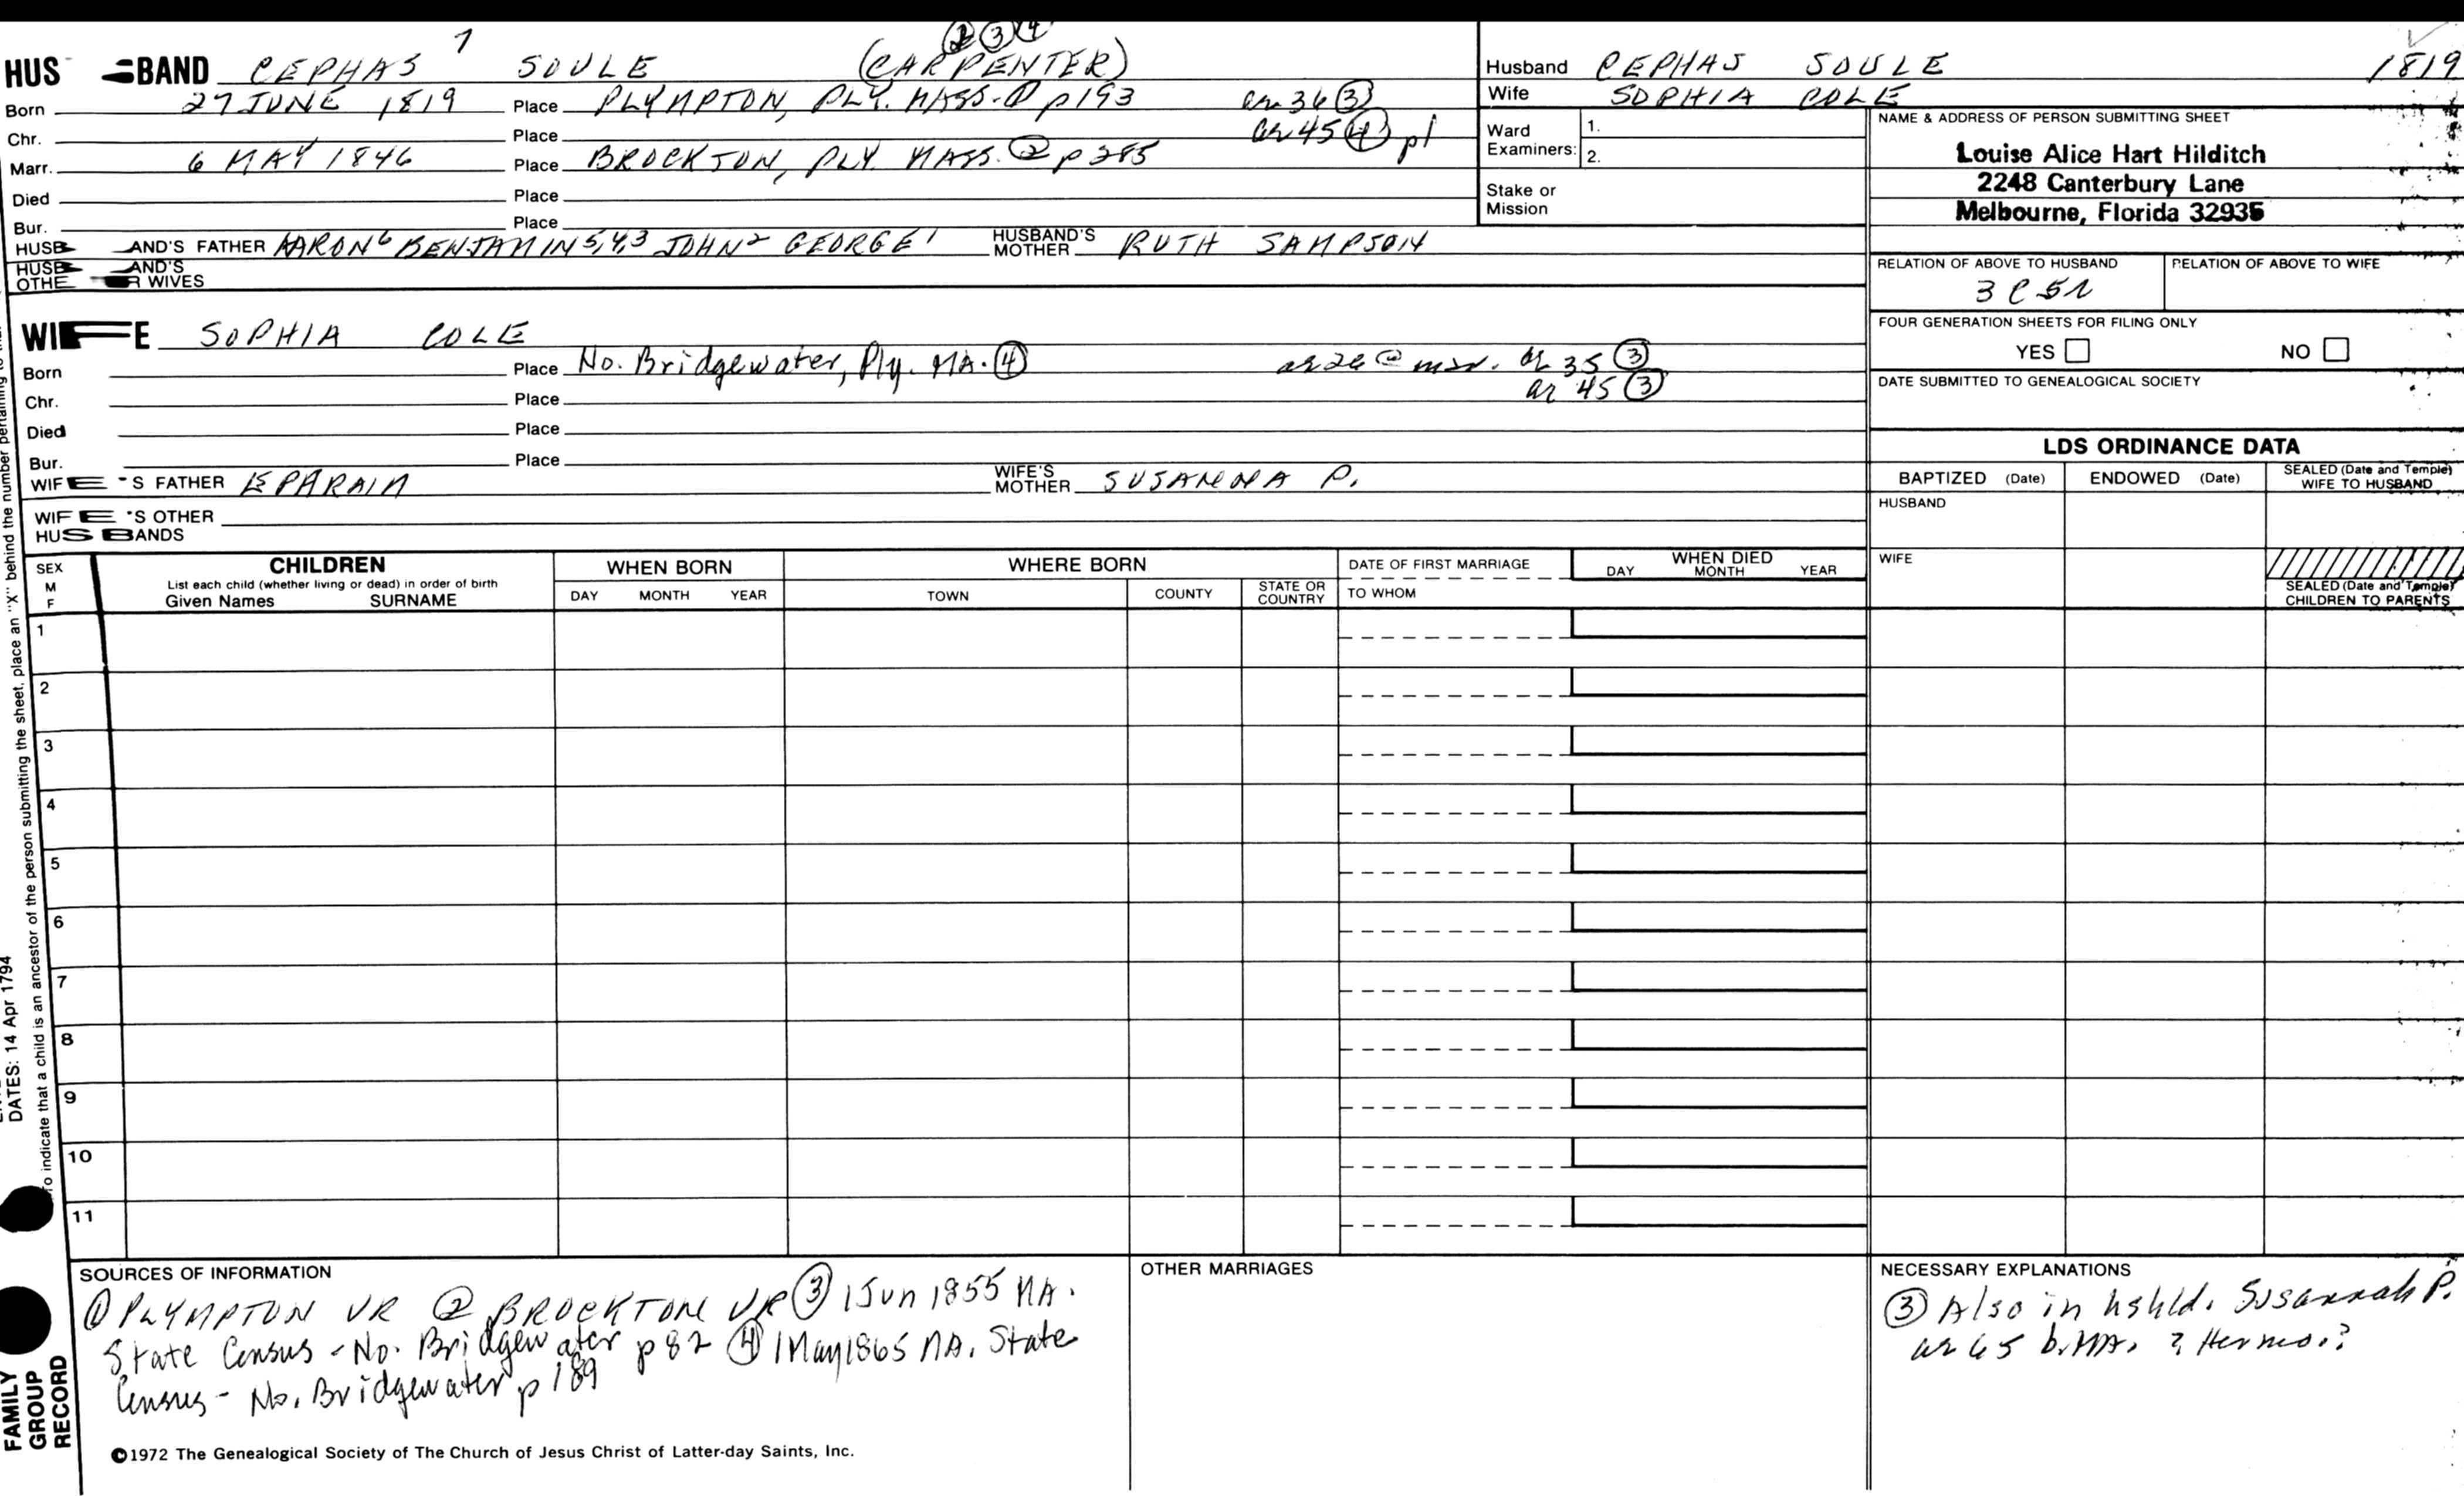 ② ③ ④
HUSBAND CEPHAS 7 SOULE (CARPENTER)
Born 27 JUNE 1819 Place PLYMPTON, PLY. MASS. ① p193 ae 36 ③
Chr. Place ae 45 ④ p1
Marr. 6 MAY 1846 Place BROCKTON, PLY. MASS. ② p 285
Died Place
Bur. Place
HUSBAND'S FATHER AARON6 BENJAMIN5,4,3 JOHN2 GEORGE1 HUSBAND'S MOTHER RUTH SAMPSON
HUSBAND'S OTHER WIVES
WIFE SOPHIA COLE
Born Place No. Bridgewater, Ply. MA. ④ ae 26 @ mar. ae 35 ③
Chr. Place ae 45 ③
Died Place
Bur. Place
WIFE'S FATHER EPHRAIM WIFE'S MOTHER SUSANNA P.
WIFE'S OTHER HUSBANDS
Husband CEPHAS SOULE 1819
Wife SOPHIA COLE
Ward Examiners: 1.
2.
Stake or Mission
NAME & ADDRESS OF PERSON SUBMITTING SHEET
Louise Alice Hart Hilditch
2248 Canterbury Lane
Melbourne, Florida 32935
RELATION OF ABOVE TO HUSBAND RELATION OF ABOVE TO WIFE
3 C 5R
FOUR GENERATION SHEETS FOR FILING ONLY
YES NO
DATE SUBMITTED TO GENEALOGICAL SOCIETY
LDS ORDINANCE DATA
BAPTIZED (Date) ENDOWED (Date) SEALED (Date and Temple) WIFE TO HUSBAND
HUSBAND
WIFE
SEALED (Date and Temple) CHILDREN TO PARENTS
SEX M F
CHILDREN
List each child (whether living or dead) in order of birth
Given Names SURNAME
WHEN BORN
DAY MONTH YEAR
WHERE BORN
TOWN COUNTY STATE OR COUNTRY
DATE OF FIRST MARRIAGE
TO WHOM
WHEN DIED
DAY MONTH YEAR
1
2
3
4
5
6
7
8
9
10
11
SOURCES OF INFORMATION
① PLYMPTON VR ② BROCKTON VR ③ 1 Jun 1855 MA.
State Census - No. Bridgewater p 82 ④ 1 May 1865 MA. State
Census - No. Bridgewater p 189
©1972 The Genealogical Society of The Church of Jesus Christ of Latter-day Saints, Inc.
OTHER MARRIAGES
NECESSARY EXPLANATIONS
③ Also in hshld. Susannah P.
ae 65 b. MA. ? Her mo.?
To indicate that a child is an ancestor of the person submitting the sheet, place an "X" behind the number pertaining to
DATES: 14 Apr 1794
FAMILY
GROUP
RECORD